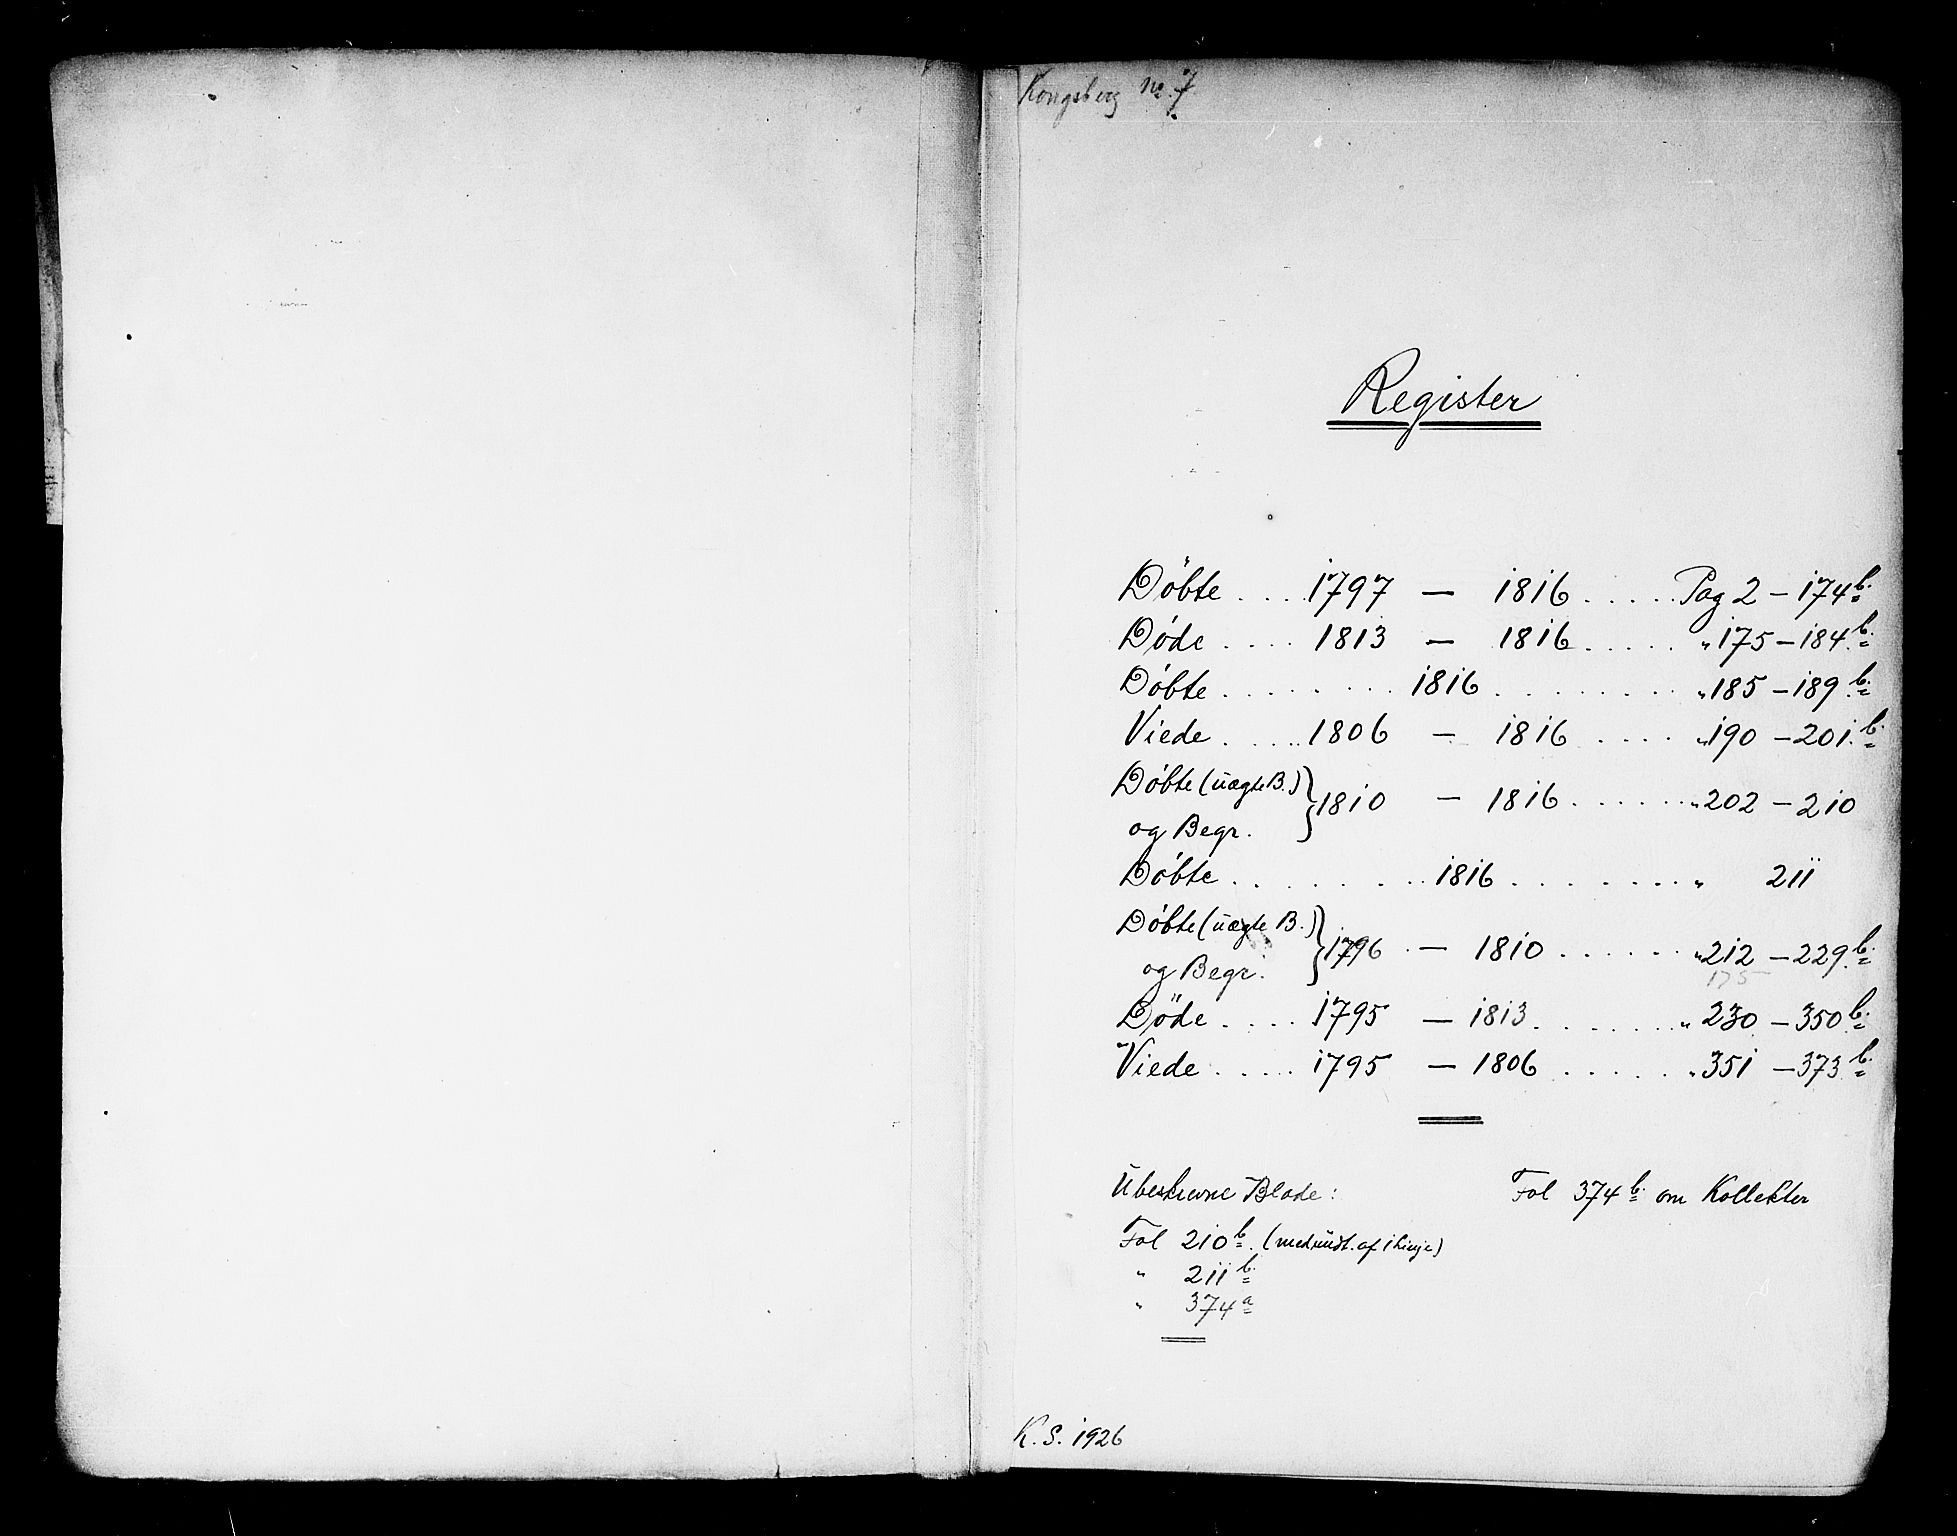 Kongsberg No. 7
Register
Döbte . . . . 1797 — 1816 . . . . . Pag 2 — 174 b.
Döde . . . . 1813 — 1816 . . . . . " 175 — 184 b.
Döbte . . . . . . . . 1816 . . . . . . . . . " 185 — 189 b.
Viede . . . . . 1806 — 1816 . . . . " 190 — 201 b.
Döbte (uægte B.)
og Begr. } 1810 — 1816 . . . . . . " 202 — 210
Döbte . . . . . . . . 1816 . . . . . . . . " 211
Döbte (uægte B.)
og Begr. } 1796 — 1810 . . . . . . " 212 — 229 b.
175
Döde . . . . 1795 — 1813 . . . . . . . " 230 — 350 b.
Viede . . . . 1795 — 1806 . . . . . " 351 — 373 b.
Ubeskrevne Blade: Fol 374 b. om Kollekter
Fol 210 b. (med undt. af 1 Linje)
" 211 b.
" 374 a
K. S. 1926